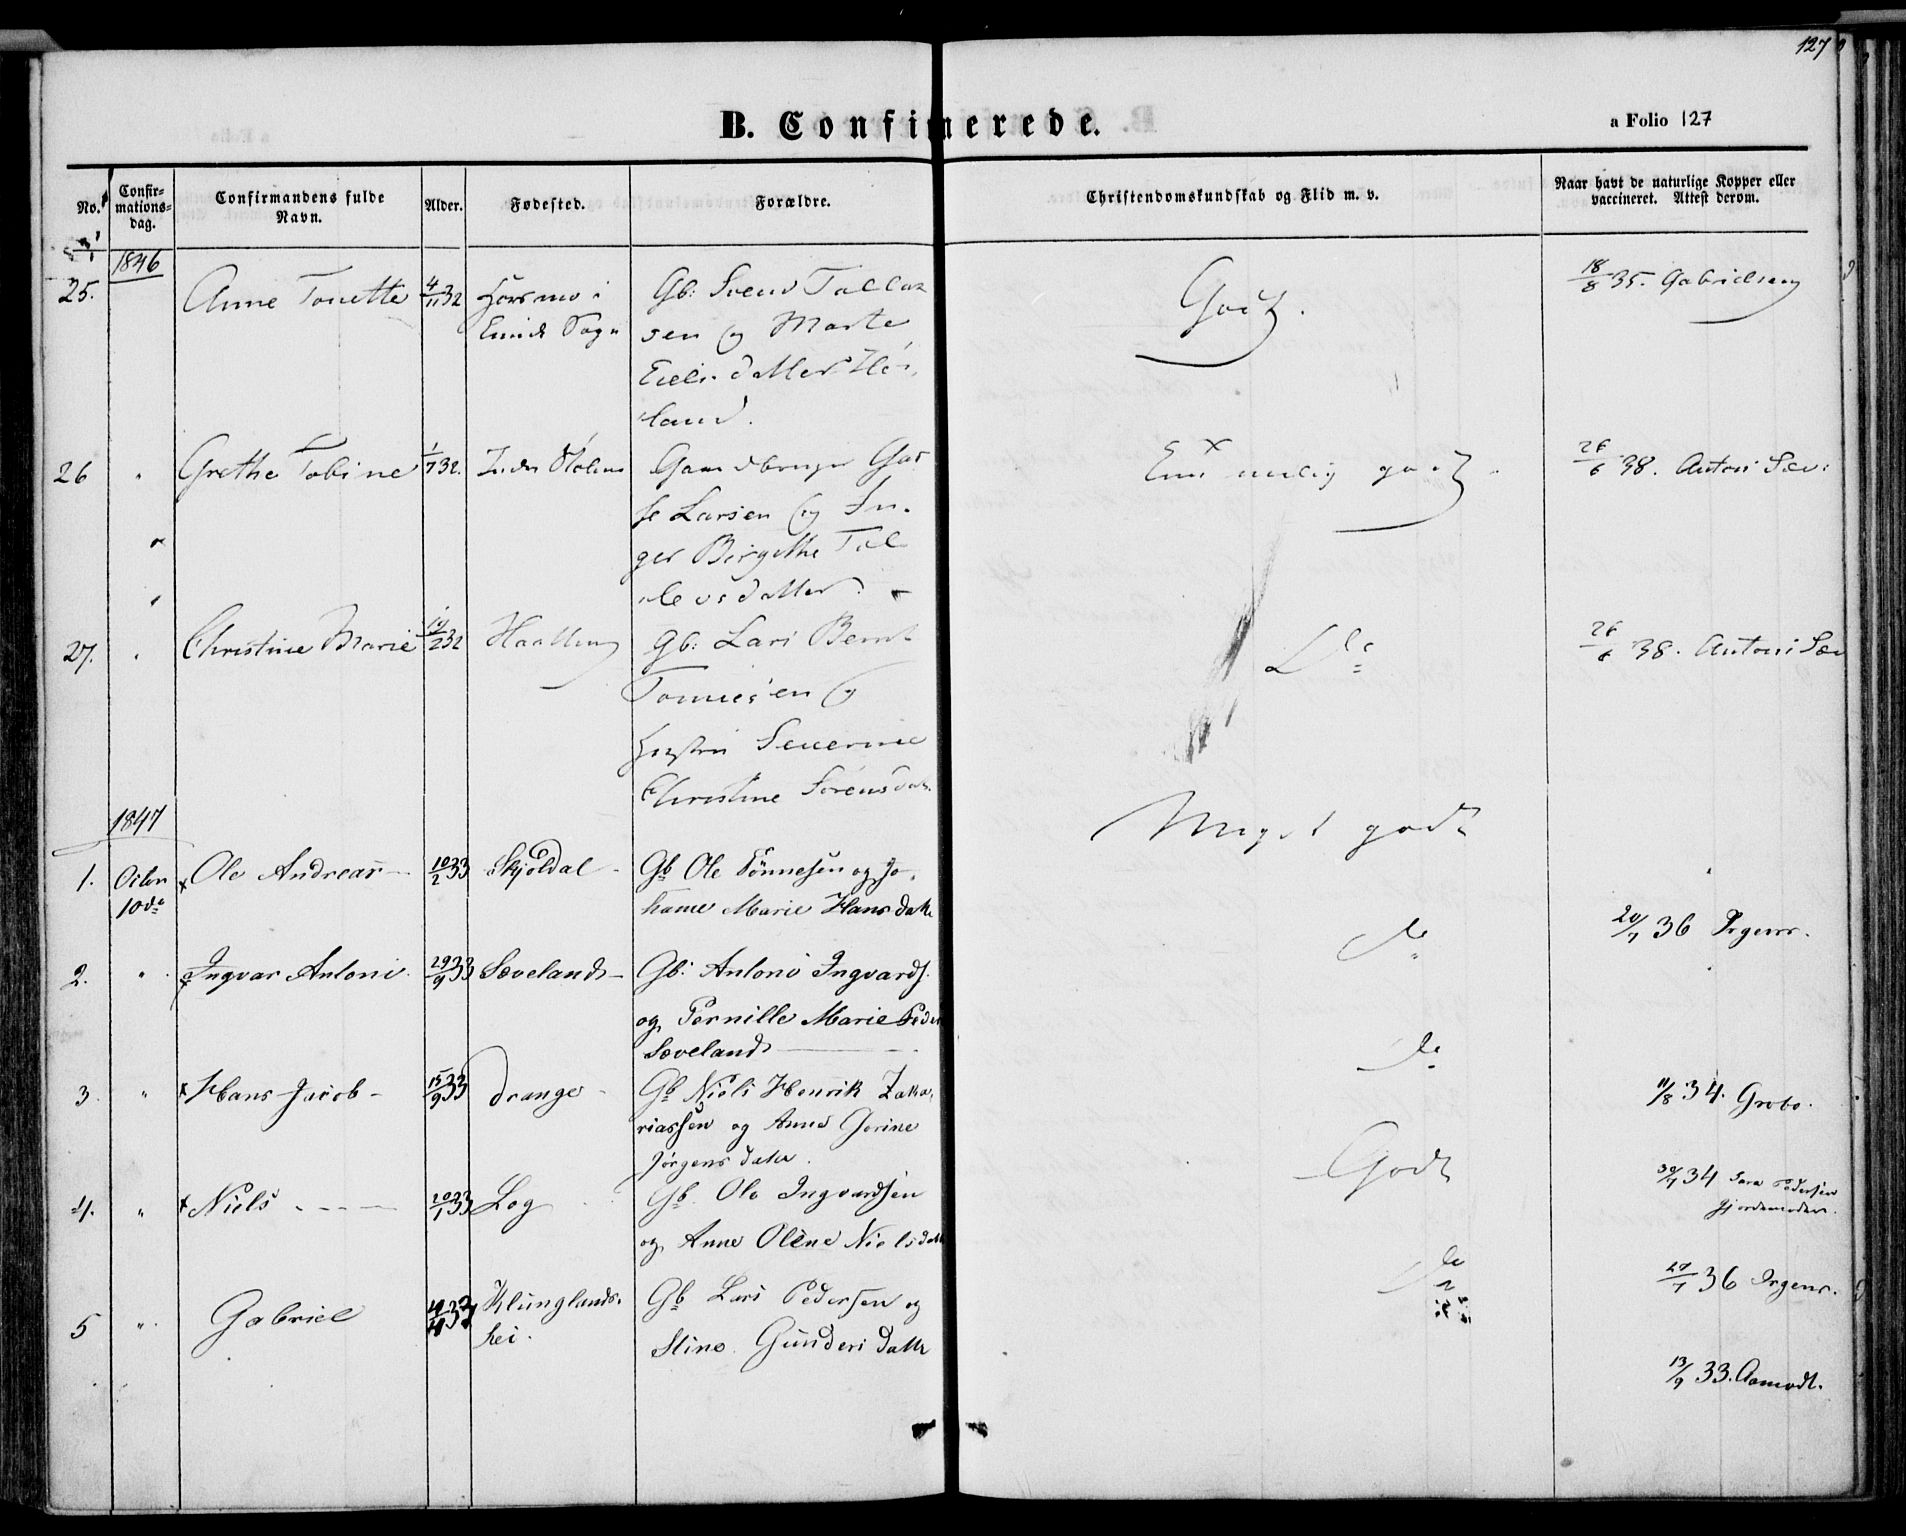 127
B. Confirmerede.
a Folio 127
No.
Confir-
mations-
dag.
Confirmandens fulde
Navn.
Alder.
Fødested.
Forældre.
Christendomskundskab og Flid m. v.
Naar havt de naturlige Kopper eller
vaccineret. Attest derom.
1846
25. Anne Tonette 4/11 32 i Gb: Svend Tallak
sen og Marte
land.
Godt.
18/8 35. Gabrielsen
26 " Grethe Tobine 1/7 32. Gaardbruger
Larsen og In-
ger Birgithe Tol
levsdatter.
godt
26/6 38. Antoni Sæv:
27. " Christine Marie 19/2 32 Gb: Lars Bernt
Tonnesen og
Hustru Severine
Christine Sørensdatr.
Do
26/6 38. Antoni Sæv
1847
1. Octbr Ole Andreas 10/2 33 Skjoldal Gb Ole Tönnesen og Jo-
10de hanne Marie Hansdatter
Meget godt
20/7 36 Irgens.
2. " Ingvar Antoni 29/9 33 Sæveland Gb: Antoni Ingvards.
og Pernille Marie Peders
Sæveland
do
11/8 34. Grobo.
3. " Hans Jacob 15/9 33 Drange Gb Niels Henrik Zaka-
riassen og Anne Gorine
Jörgensdatter.
do
4. " Niels 20/1 33 Log Gb. Ole Ingvardsen
og Anne Olene Nielsdatter
Godt
30/7 34 Sara Pedersen
Gjordemoder.
5 " Gabriel 33 Klunglands-
hei. Gb Lars Pedersen og
Stine Gundersdatter
do
20/7 36 Irgens.
13/9 33. Aamodt.